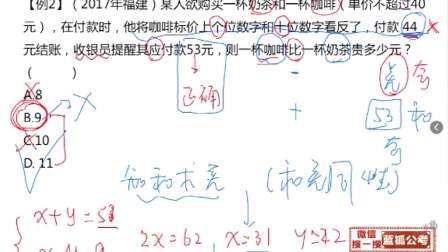 【例2】（2017年福建）某人欲购买一杯奶茶和一杯咖啡（单价不超过40
元），在付款时，他将咖啡标价上个位数字和十位数字看反了，付款 44
元结账，收银员提醒其应付款53元，则一杯咖啡比一杯奶茶贵多少元？
（ ）
A.8
B.9
C.10
D.11
正确
-
+
53
和
知和求差
（和差同
x+y=53
2x=62
x=31
y=22
微信
扫一扫
蓝狐公考